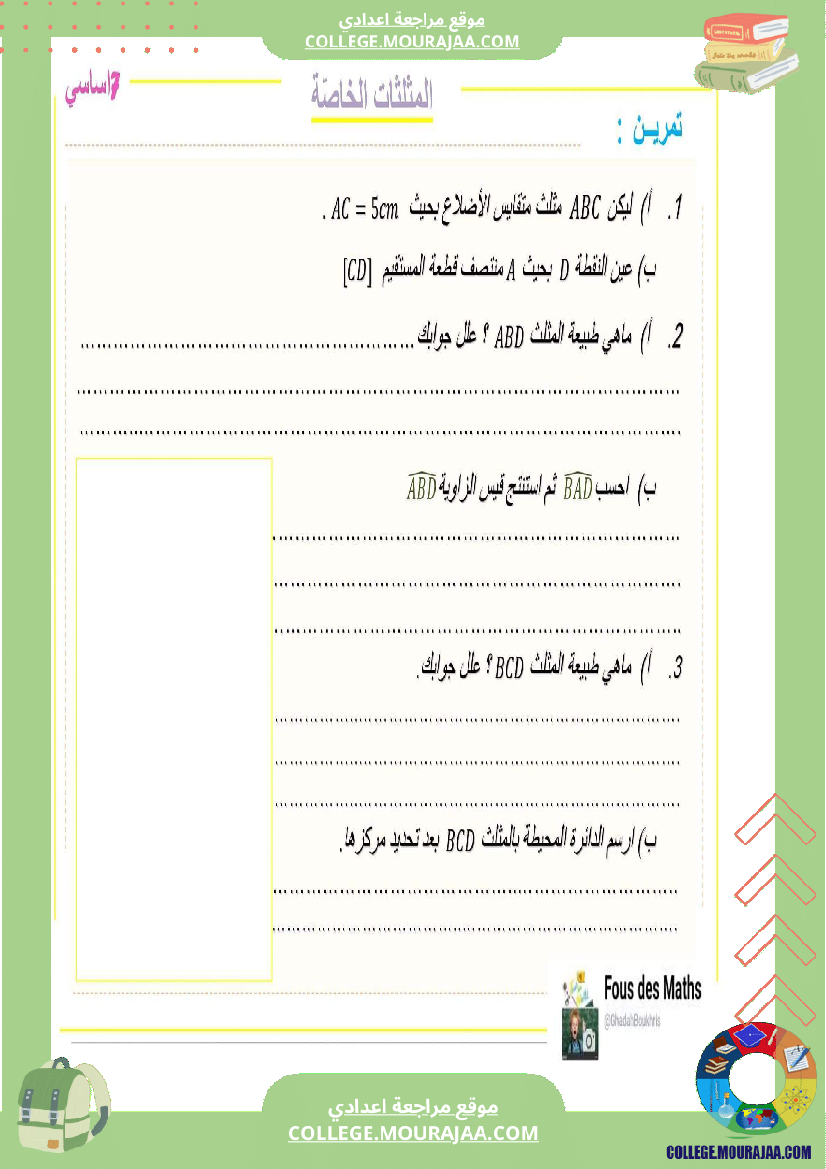 موقع مراجعة اعدادي
COLLEGE.MOURAJAA.COM
7اساسي
المثلثات الخاصّة
تمريـن :
1. أ) ليكن ABC مثلث متقايس الأضلاع بحيث AC = 5cm .
ب) عين النقطة D بحيث A منتصف قطعة المستقيم [CD]
2. أ) ماهي طبيعة المثلث ABD ؟ علل جوابك
ب) احسب BAD ثم استنتج قيس الزاوية ABD
3. أ) ماهي طبيعة المثلث BCD ؟ علل جوابك.
ب) ارسم الدائرة المحيطة بالمثلث BCD بعد تحديد مركزها.
Fous des Maths
@GhadahBoukhris
موقع مراجعة اعدادي
COLLEGE.MOURAJAA.COM
COLLEGE.MOURAJAA.COM